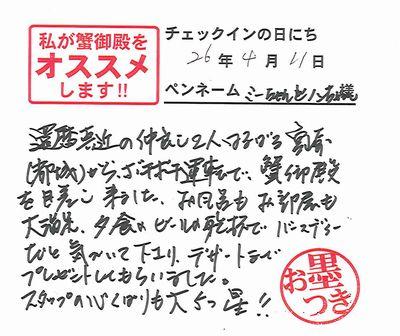 私が蟹御殿を
オススメ
します!!
チェックインの日にち
26年4月11日
ペンネーム ミーちゃんとノンちゃん様
還暦真近の仲良し2人 はるばる宮崎
(都城)から、ボチボチ運転で、蟹御殿
を目ざして来ました。お風呂もお部屋も
大満足、夕食のビールの乾杯で バースディー
だと気がついて下さり、デザートまで
プレゼントしてもらいました。
スタッフの心くばりも大5つ星!!
お墨
つき